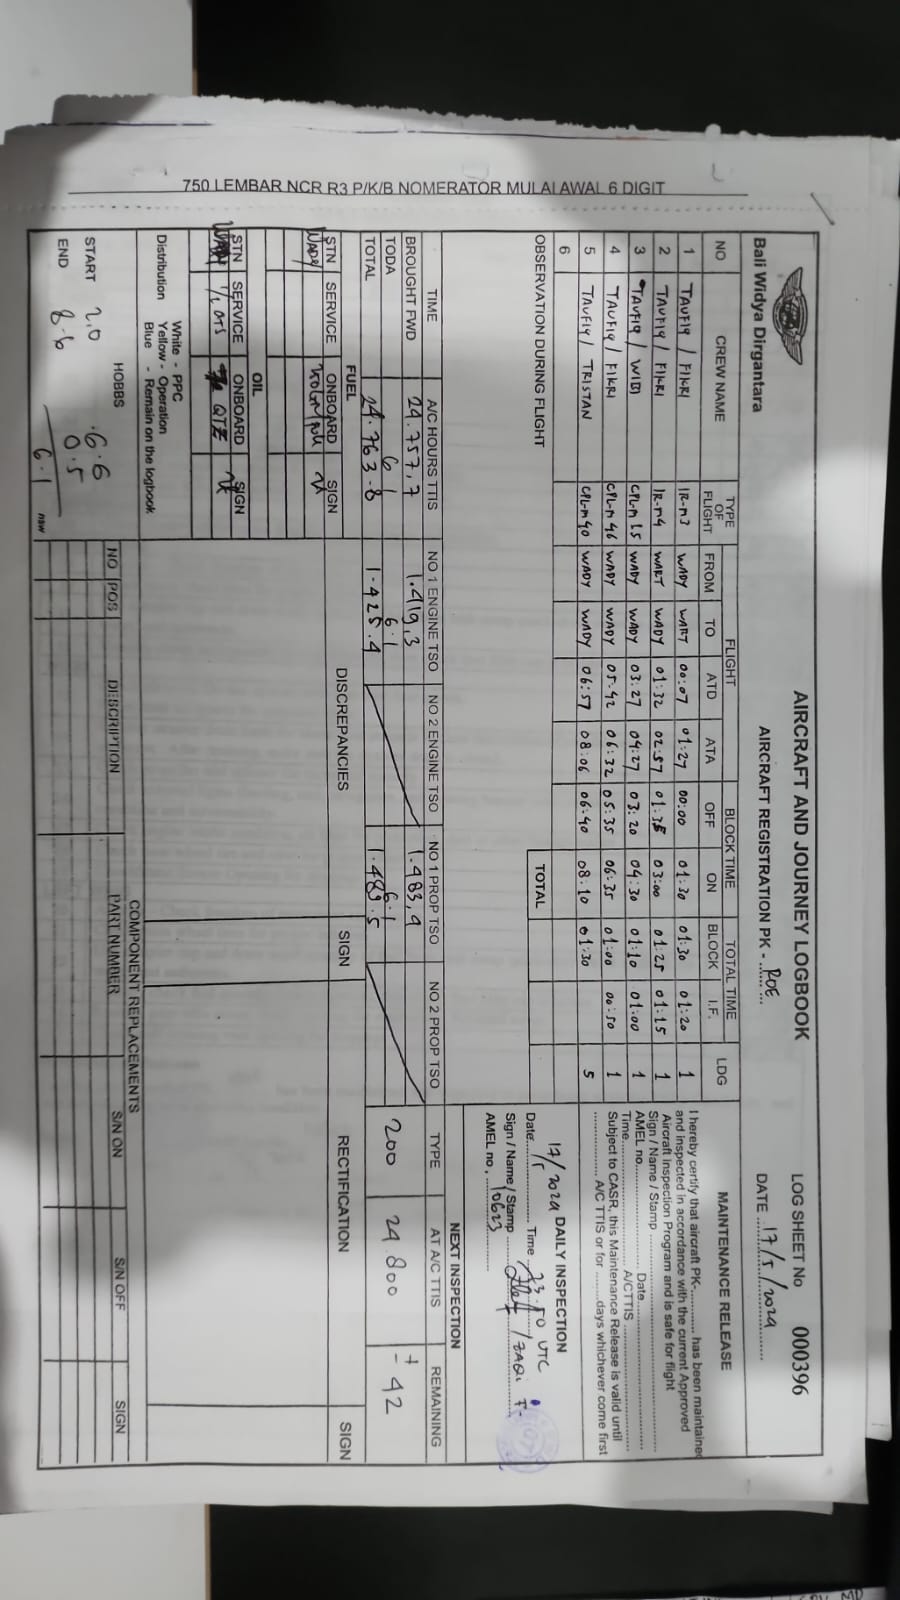 750 LEMBAR NCR R3 P/K/B NOMERATOR MULAI AWAL 6 DIGIT
Bali Widya Dirgantara
AIRCRAFT AND JOURNEY LOGBOOK
AIRCRAFT REGISTRATION PK - ROE
LOG SHEET No 000396
DATE 17/5/2024
NO CREW NAME TYPE OF FLIGHT FLIGHT BLOCK TIME TOTAL TIME LDG
FROM TO ATD ATA OFF ON BLOCK I.F.
1 TAUFIQ / FIKRI IR-M3 WADY WART 00:07 01:27 00:00 01:30 01:30 01:20 1
2 TAUFIQ / FIKRI IR-M4 WART WADY 01:32 02:57 01:35 03:00 01:25 01:15 1
3 TAUFIQ / WIBI CPL-M 15 WADY WADY 03:27 04:27 03:20 04:30 01:10 01:00 1
4 TAUFIQ / FIKRI CPL-M 46 WADY WADY 05:42 06:32 05:35 06:35 01:00 00:50 1
5 TAUFIQ / TRISTAN CPL-M 40 WADY WADY 06:57 08:06 06:40 08:10 01:30 5
6
TOTAL
OBSERVATION DURING FLIGHT
MAINTENANCE RELEASE
I hereby certify that aircraft PK-........... has been maintained
and inspected in accordance with the current Approved
Aircraft Inspection Program and is safe for flight
Sign / Name / Stamp
AMEL no. Date
Time A/CTTIS
Subject to CASR, this Maintenance Release is valid until
A/C TTIS or for ........ days whichever come first
DAILY INSPECTION
Date 17/5 /2024 Time 23.50 UTC
Sign / Name / Stamp / ZAQI F.
AMEL no. 10623
TIME A/C HOURS TTIS NO 1 ENGINE TSO NO 2 ENGINE TSO NO 1 PROP TSO NO 2 PROP TSO
BROUGHT FWD 24.757,7 1.419,3 1.483,4
TODA 6.1 6.1 6.1
TOTAL 24.763.8 1.425.4 1.489.5
NEXT INSPECTION
TYPE AT A/C TTIS REMAINING
200 24.800 + - 42
FUEL
STN SERVICE ONBOARD SIGN
WADY
OIL
STN SERVICE ONBOARD SIGN
QTZ
DISCREPANCIES SIGN RECTIFICATION SIGN
Distribution White - PPC
Yellow - Operation
Blue - Remain on the logbook
COMPONENT REPLACEMENTS
NO POS DESCRIPTION PART NUMBER S/N ON S/N OFF SIGN
HOBBS
START 2.0 6.6
END 8.6 0.5
6.1